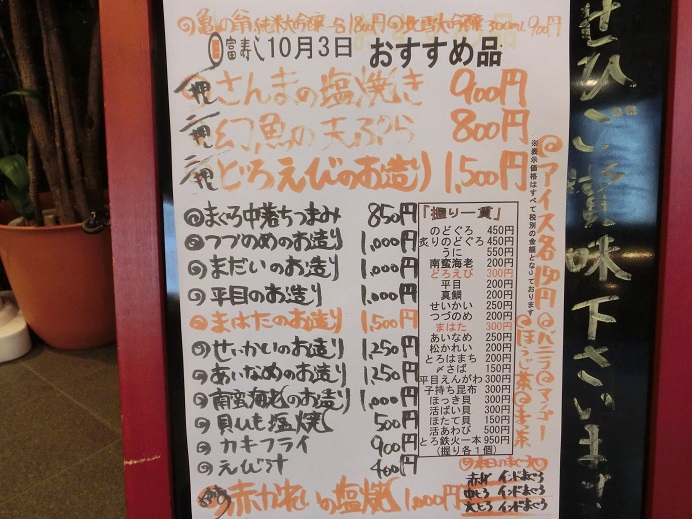 亀の翁純米大吟醸一合1800円 北雪大吟醸300mL 900円
富寿し10月3日 おすすめ品
一押 さんまの塩焼き 900円
二押 幻魚の天ぷら 800円
三押 どろえびのお造り 1,500円
まぐろ中落ちつまみ 850円
つづのめのお造り 1,000円
まだいのお造り 1,000円
平目のお造り 1,000円
まはたのお造り 1,500円
せいかいのお造り 1,250円
あいなめのお造り 1,250円
南蛮海老のお造り 1,000円
貝ひも塩焼 500円
カキフライ 900円
えび汁 400円
赤かれいの塩焼 1,000円
『握り一貫』
のどぐろ 450円
炙りのどぐろ 450円
うに 550円
南蛮海老 200円
どろえび 300円
平目 200円
真鯛 200円
せいかい 250円
つづのめ 200円
まはた 300円
あいなめ 250円
松かれい 200円
とろはまち 200円
〆さば 150円
平目えんがわ 300円
子持ち昆布 300円
ほっき貝 300円
活ばい貝 300円
ほたて貝 150円
活あわび 500円
とろ鉄火一本 950円
(握り各1個)
※表示価格はすべて税別の金額となっております
アイス各150円
バニラ マンゴー
ほうじ茶 抹茶
本日のまぐろ
赤身 インドまぐろ
中とろ インドまぐろ
大とろ インドまぐろ
ぜひご賞味下さいませ